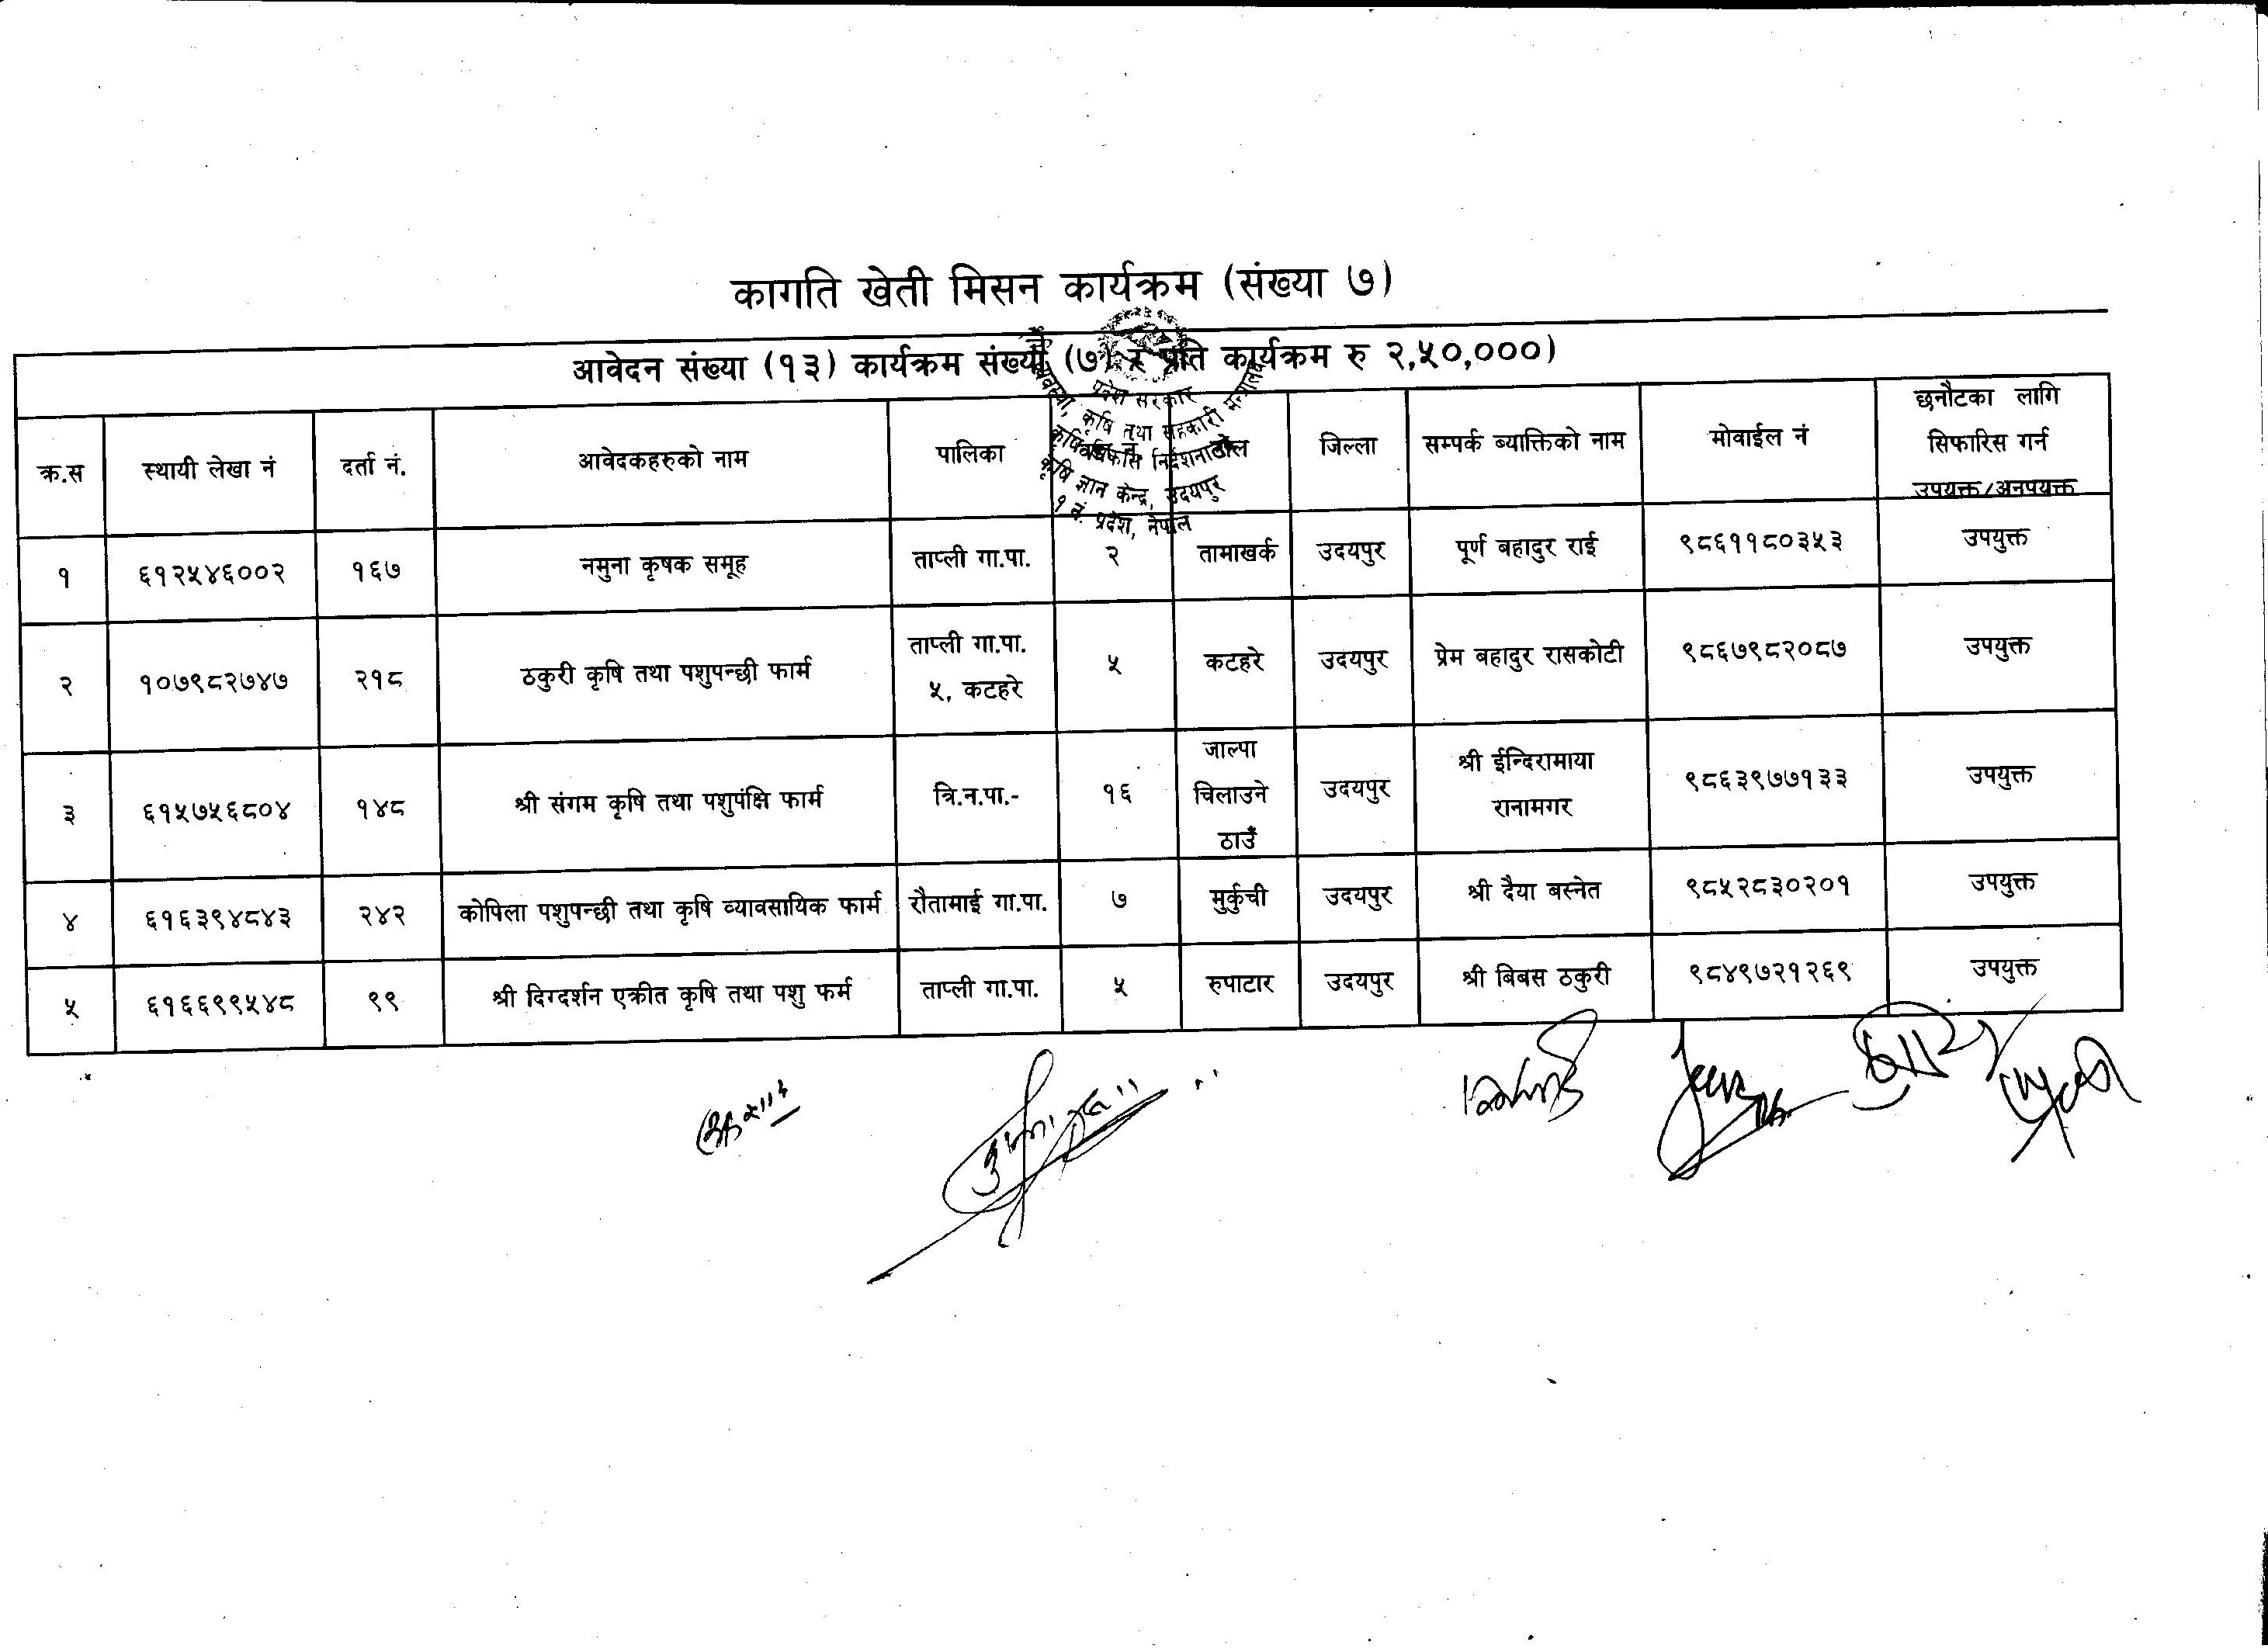 कागति खेती मिसन कार्यक्रम (संख्या ७)
आवेदन संख्या (१३) कार्यक्रम संख्या (७) र प्रति कार्यक्रम रु २,५०,०००)
क्र.स स्थायी लेखा नं दर्ता नं. आवेदकहरुको नाम पालिका वडा नं. टोल जिल्ला सम्पर्क ब्याक्तिको नाम मोवाईल नं छनौटका लागि
सिफारिस गर्न
उपयुक्त/अनपयुक्त
प्रदेश सरकार
कृषि तथा सहकारी मन्त्रालय
कृषि विकास निर्देशनालय
कृषि ज्ञान केन्द्र, उदयपुर
१ नं. प्रदेश, नेपाल
१ ६१२५४६००२ १६७ नमुना कृषक समूह ताप्ली गा.पा. २ तामाखर्क उदयपुर पूर्ण बहादुर राई ९८६११८०३५३ उपयुक्त
२ १०७९८२७४७ २१८ ठकुरी कृषि तथा पशुपन्छी फार्म ताप्ली गा.पा.
५, कटहरे ५ कटहरे उदयपुर प्रेम बहादुर रासकोटी ९८६७९८२०८७ उपयुक्त
३ ६१५७५६८०४ १४८ श्री संगम कृषि तथा पशुपंक्षि फार्म त्रि.न.पा.- १६ जाल्पा
चिलाउने
ठाउँ उदयपुर श्री ईन्दिरामाया
रानामगर ९८६३९७७१३३ उपयुक्त
४ ६१६३९४८४३ २४२ कोपिला पशुपन्छी तथा कृषि व्यावसायिक फार्म रौतामाई गा.पा. ७ मुर्कुची उदयपुर श्री दैया बस्नेत ९८५२८३०२०१ उपयुक्त
५ ६१६६९९५४८ ९९ श्री दिग्दर्शन एक्रीत कृषि तथा पशु फर्म ताप्ली गा.पा. ५ रुपाटार उदयपुर श्री बिबस ठकुरी ९८४९७२१२६९ उपयुक्त